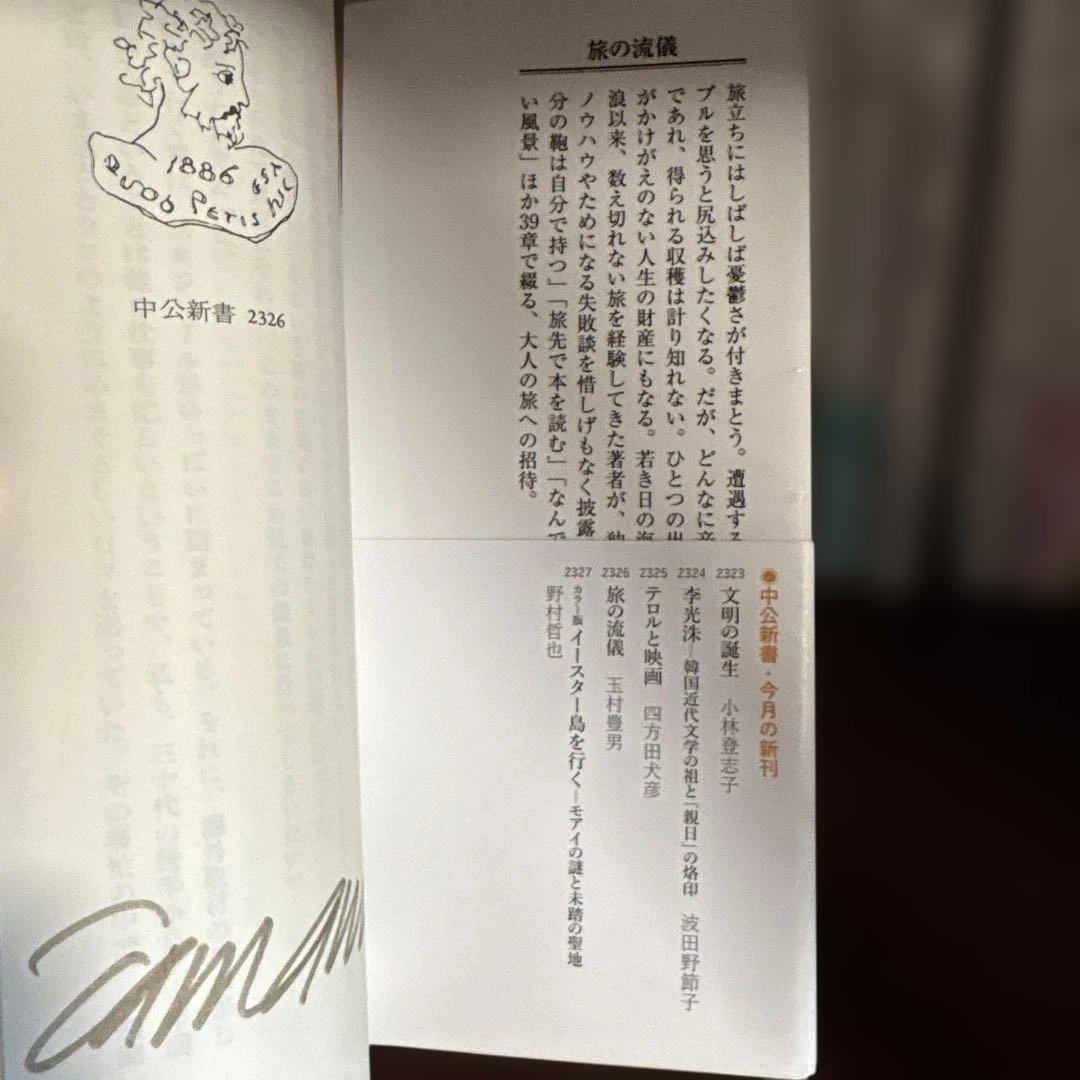 1886
中公新書 2326
旅の流儀
旅立ちにはしばしば憂鬱さが付きまとう。遭遇する
ブルを思うと尻込みしたくなる。だが、どんなに
であれ、得られる収穫は計り知れない。ひとつの出
がかけがえのない人生の財産にもなる。若き日の
浪以来、数え切れない旅を経験してきた著者が、
ノウハウやためになる失敗談を惜しげもなく披露
分の鞄は自分で持つ」「旅先で本を読む」「なんで
い風景」ほか39章で綴る、大人の旅への招待。
●中公新書・今月の新刊
2323 文明の誕生 小林登志子
2324 李光洙―韓国近代文学の祖と「親日」の烙印 波田野節子
2325 テロルと映画 四方田犬彦
2326 旅の流儀 玉村豊男
2327 カラー版 イースター島を行く―モアイの謎と未踏の聖地
野村哲也